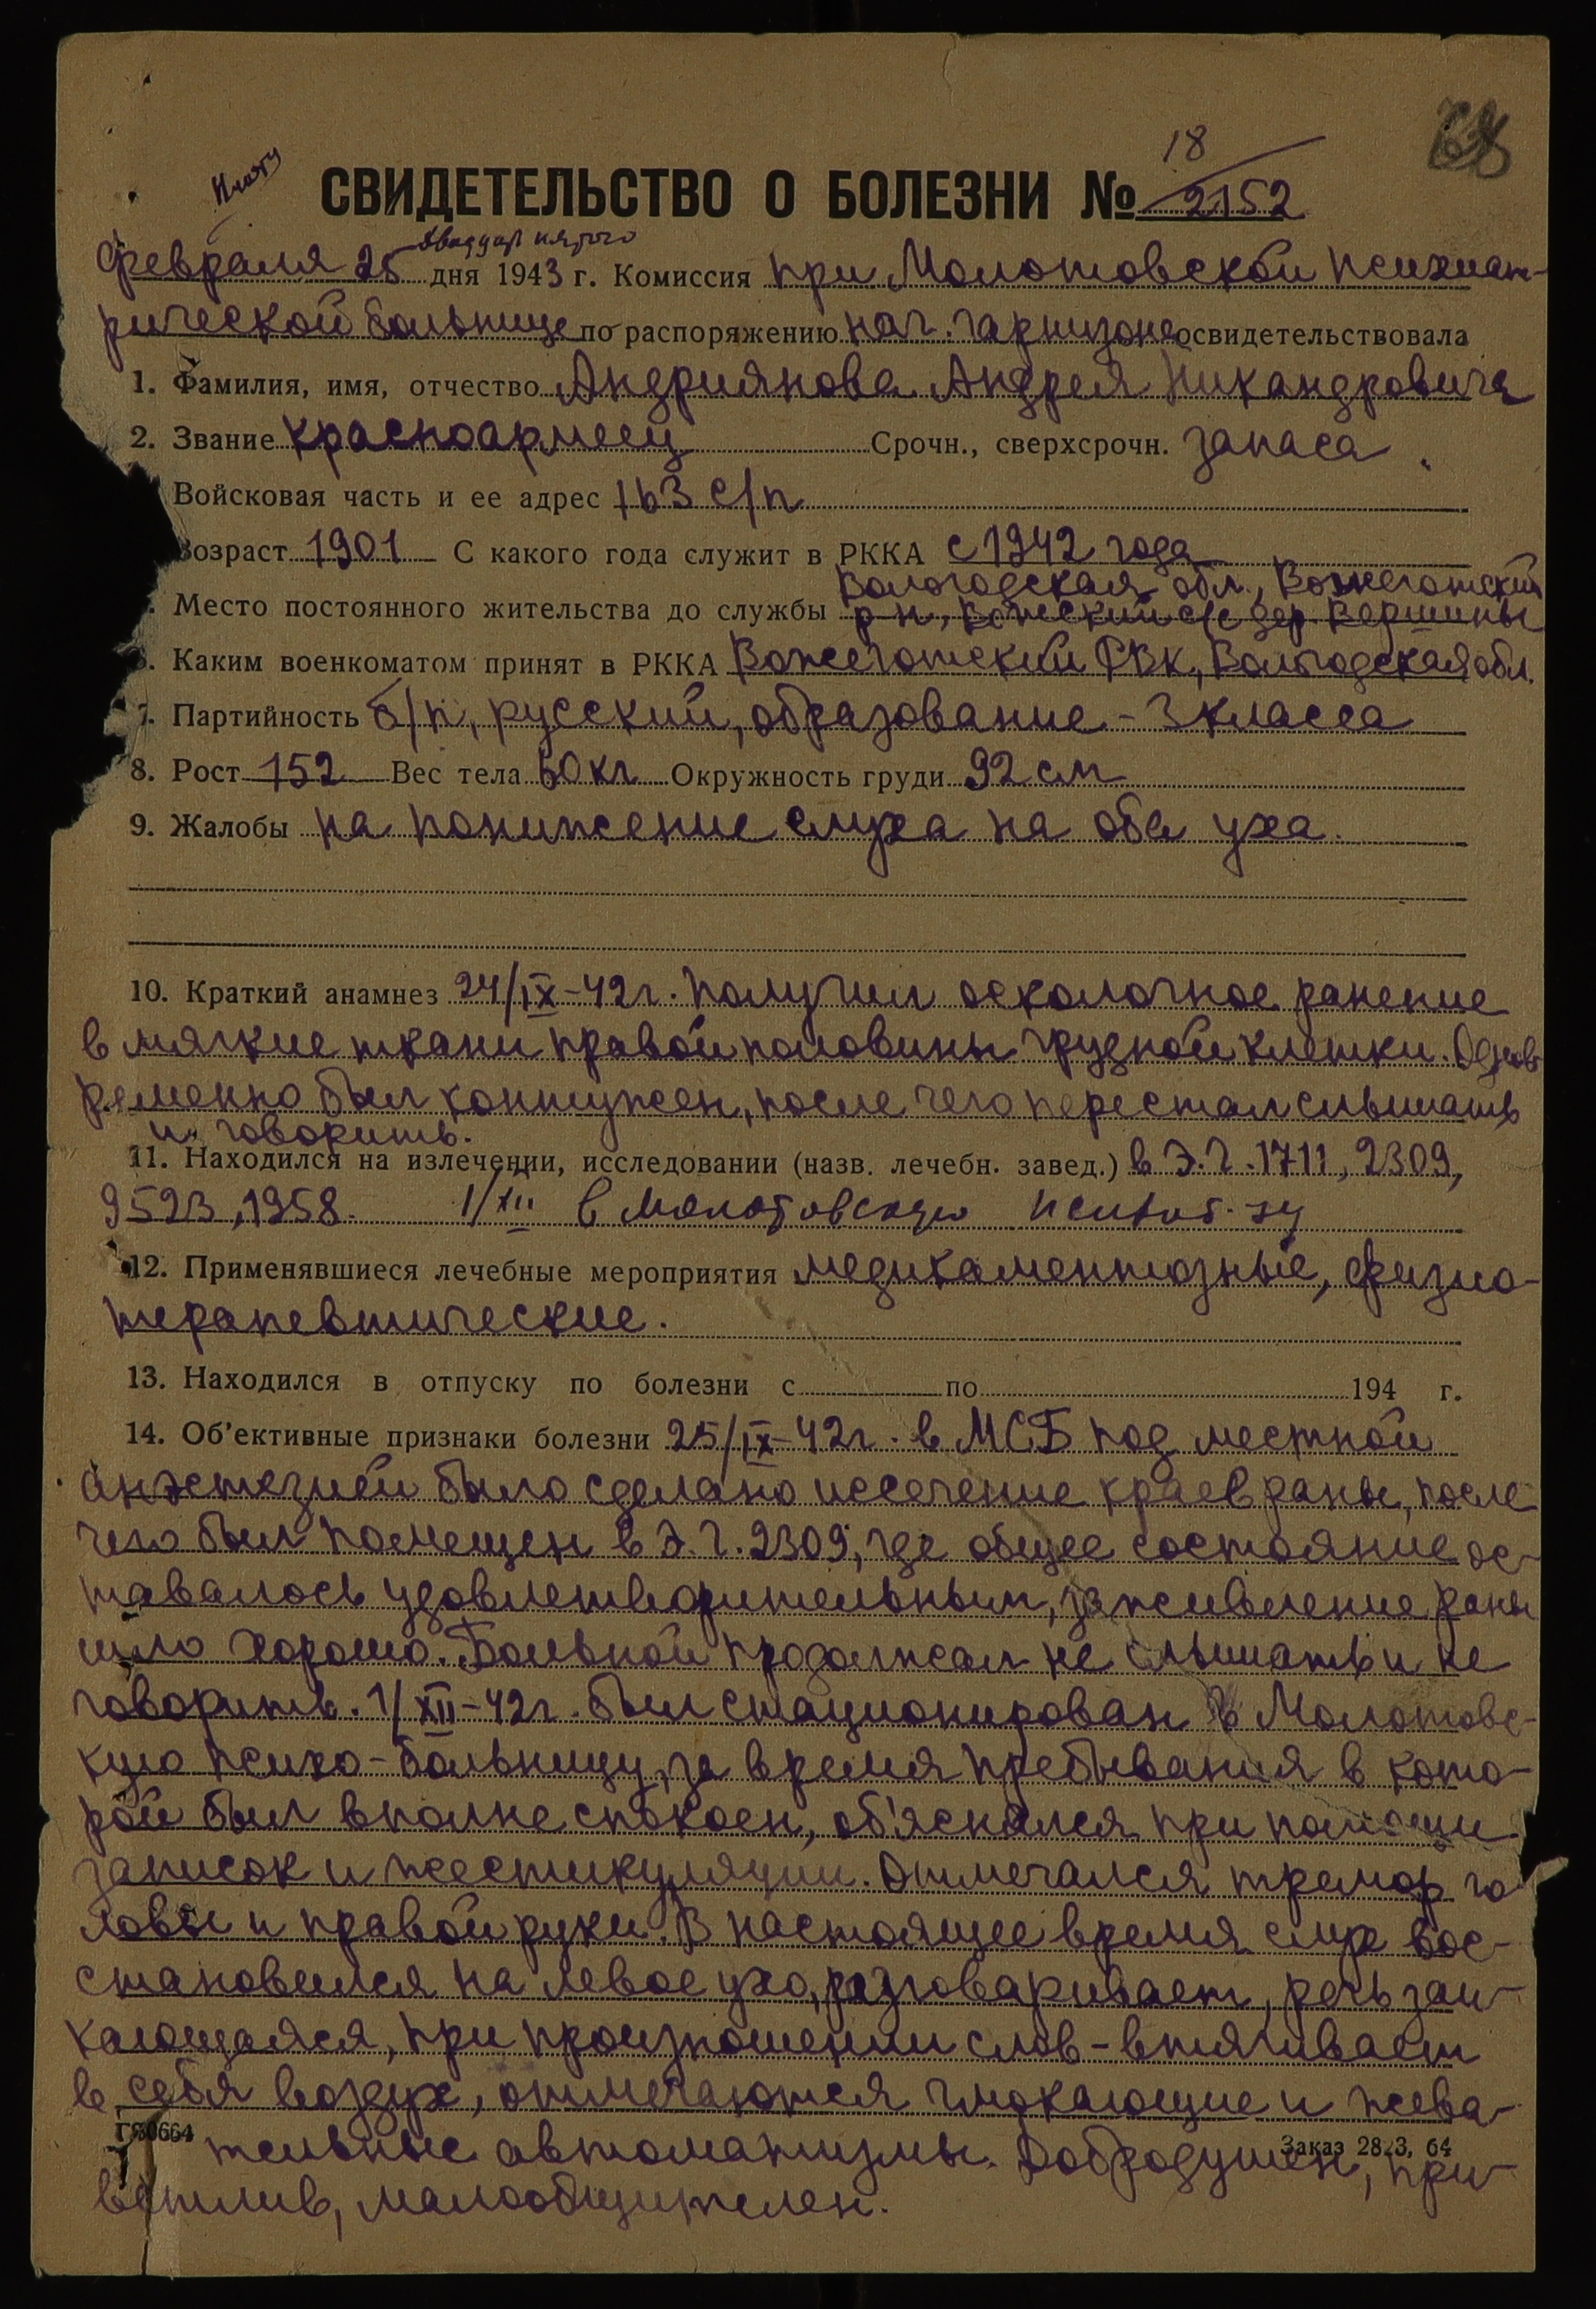 18
СВИДЕТЕЛЬСТВО О БОЛЕЗНИ № 2152
двадцать пятого
Февраля 25 дня 1943 г. Комиссия при Молотовской психиат-
рической больнице по распоряжению нач. гарнизона освидетельствовала
1. Фамилия, имя, отчество Андриянова Андрея Никандровича
2. Звание красноармеец Срочн., сверхсрочн. запаса
Войсковая часть и ее адрес 163 с/п
Возраст 1901 С какого года служит в РККА с 1942 года
Вологодская обл., Вожеготский
Место постоянного жительства до службы р-н, Вожский с/с дер. Вершины
6. Каким военкоматом принят в РККА Вожеготский РВК, Вологодская обл.
7. Партийность б/п, русский, образование - 3 класса
8. Рост 152 Вес тела 60 кг Окружность груди 92 см
9. Жалобы на понижение слуха на оба уха.
10. Краткий анамнез 24/IX-42г. получил осколочное ранение
в мягкие ткани правой половины грудной клетки. Однов-
ременно был контужен, после чего перестал слышать
и говорить.
11. Находился на излечении, исследовании (назв. лечебн. завед.) в Э.Г. 1711, 2309,
9523, 1958. 1/XII в Молотовскую психиб-цу
12. Применявшиеся лечебные мероприятия медикаментозные, физио-
терапевтические.
13. Находился в отпуску по болезни с по 194 г.
14. Об'ективные признаки болезни 25/IX-42г. в МСБ под местной
анэстезией было сделано иссечение краев раны, после
чего был помещен в Э.Г. 2309, где общее состояние ос-
тавалось удовлетворительным, заживление раны
шло хорошо. Больной продолжал не слышать и не
говорить. 1/XII-42г. был стационирован в Молотовс-
кую психо-больницу, за время пребывания в кото-
рой был вполне спокоен, об'яснялся при помощи
записок и жестикуляции. Отмечался тремор го-
ловы и правой руки. В настоящее время слух вос-
становился на левое ухо, разговаривает, речь заи-
кающаяся, при произношении слов - втягивает
в себя воздух, отмечаются чмокающие и жева-
тельные автоматизмы. Добродушен, при-
Заказ 2823, 64
ветлив, малообщителен.